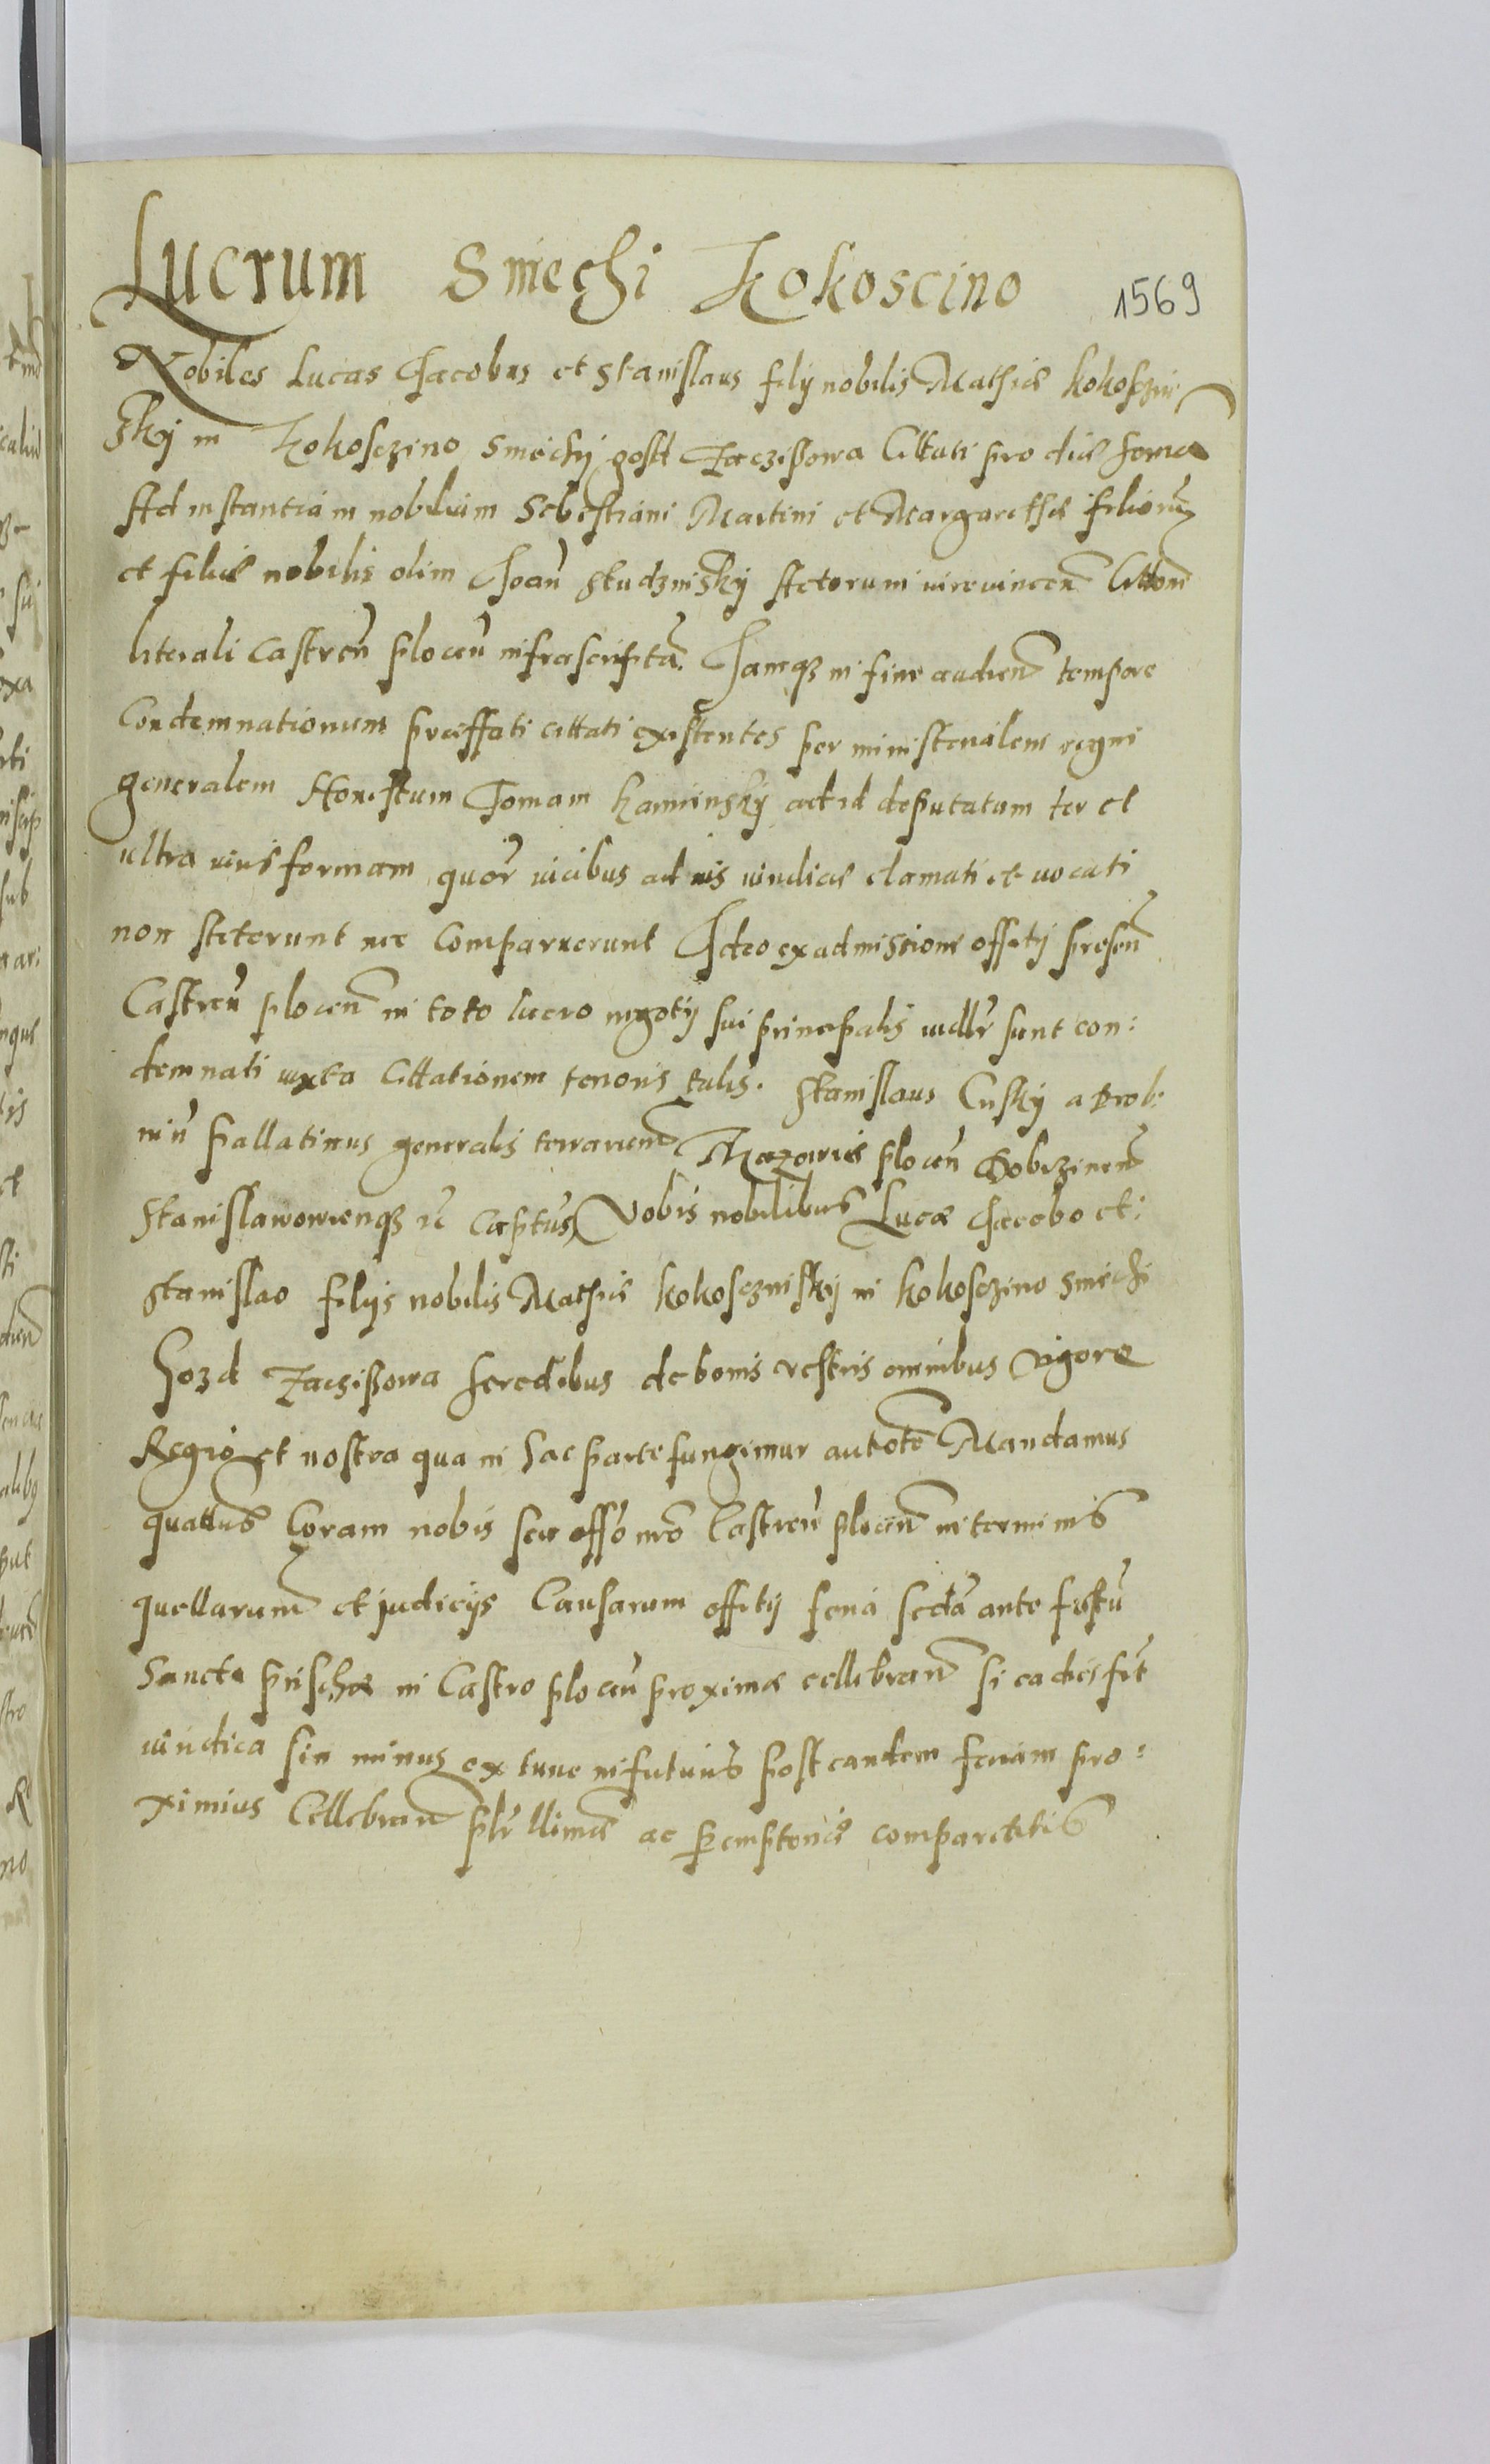 Lucrum Smiechi Kokoscino 1569
Nobiles Lucas Jacobus et Stanislaus filij nobilis Mathiæ Kokoszin
Sky in Kokosczino Smiechy gosd Taczißowa Cittati pro die hoerna
Ad instantiam nobilium Sebestiani Martini et Margarethæ filiorum
et filiæ nobilis olim Joan̄ Studzinsky Actorum iurevincen̄ Citton̄e
literali Castren̄ plocen̄ infrascripta. Jamq3 in fine audien̄ tempore
Condemnationum præffati cittati existentes per ministerialem regni
generalem Honestum Tomam Kaminsky ad id deputatum ter et
ultra iuris formam quor̄ vicibus ad ius iuridice clamati et vocati
non steterunt nec Comparuerunt Ideo ex admissione offitij presen̄
Castren̄ plocen̄ in toto lucro negotij sui principalis iudlr̄ sunt con:
demnati iuxta Cittationem tenoris talis. Stanislaus Cusky a Drob:
nin̄ pallatinus generalis terrarum̄ Mazowiæ plocen̄ Dobrzinen̄
Stanislawowienq3 r̄c Captus Vobis nobilibus Lucæ Jacobo et:
Stanislao filijs nobilis Mathiæ Kokosczinskij in Kokosczino Smiechi
Hozd Taczißowa heredibus de bonis vestris omnibus vigore
Regio et nostra qua in hac parte fungimur autote Mandamus
quattus Coram nobis seu offo nr̄o Castren̄ plocen̄ in terminis
quellarum et judicijs Causarum offitij feria seda ante festū
Sanctæ prischæ in Castro plocen̄ proxime cellebran̄ si ea dies fit
iuridica sin minus ex tunc in futuris post eandem feriam pro:
ximius Cellebran̄ plr̄ llime ac peremptorie comparetitis